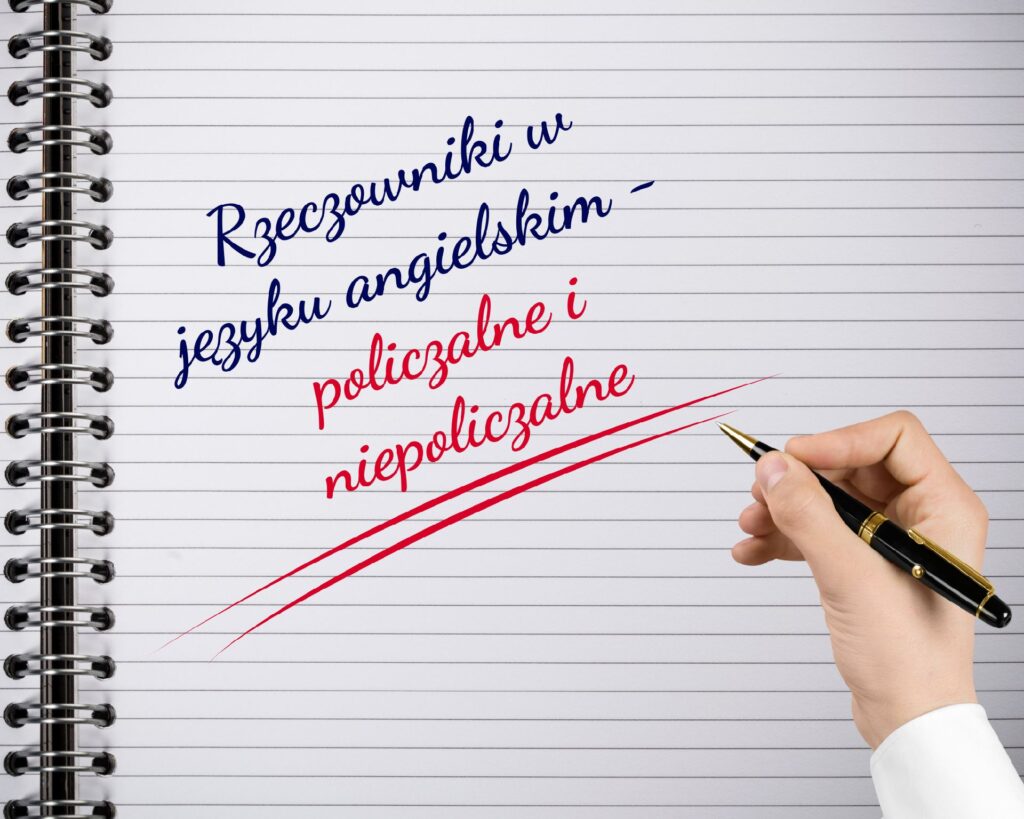 Rzeczowniki w
języku angielskim -
policzalne i
niepoliczalne